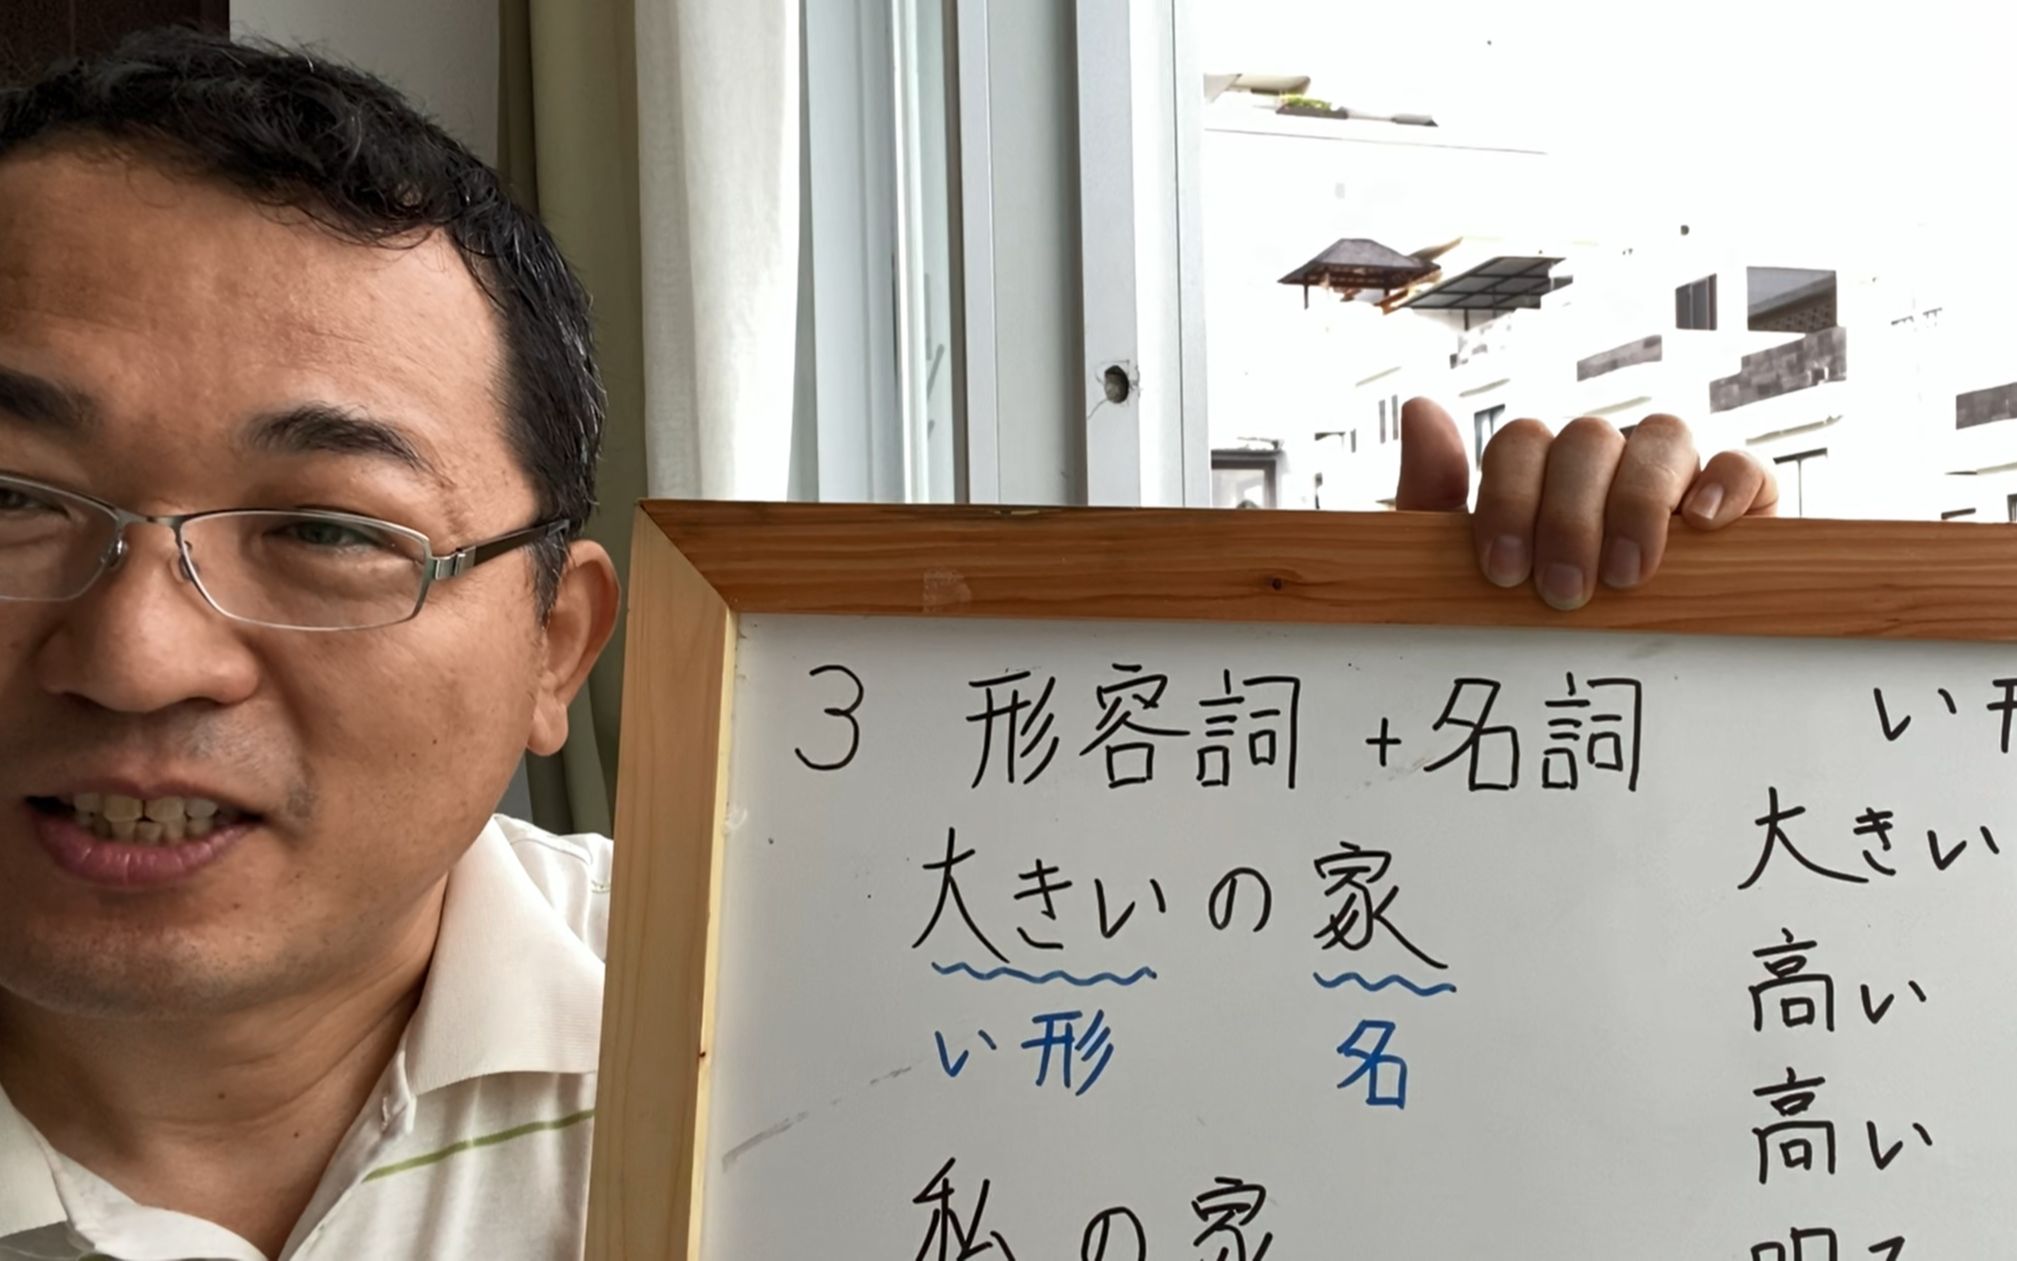 3 形容詞 + 名詞
大きいの家
い形 名
私の家
い形
大きい
高い
高い
明る